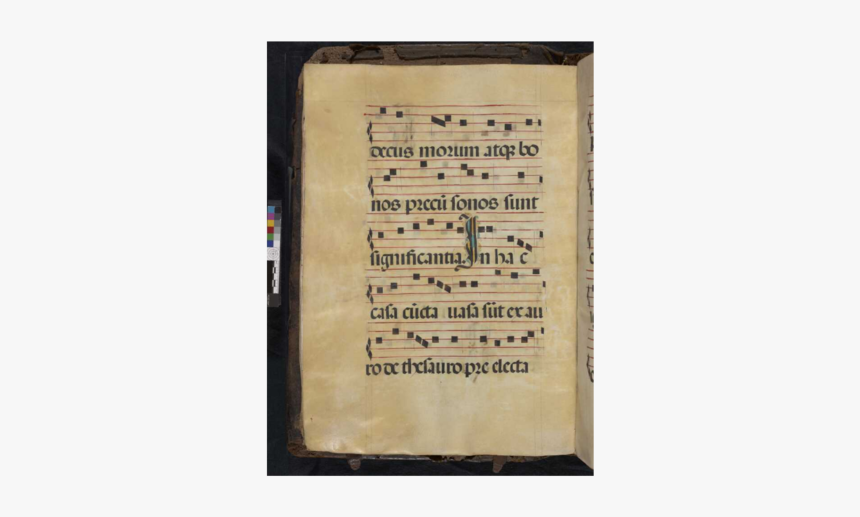 decus morum atq̄ bo
nos precū sonos sunt
significantia. In ha c
casa cūcta uasa sūt ex au
ro de thesauro pre electa